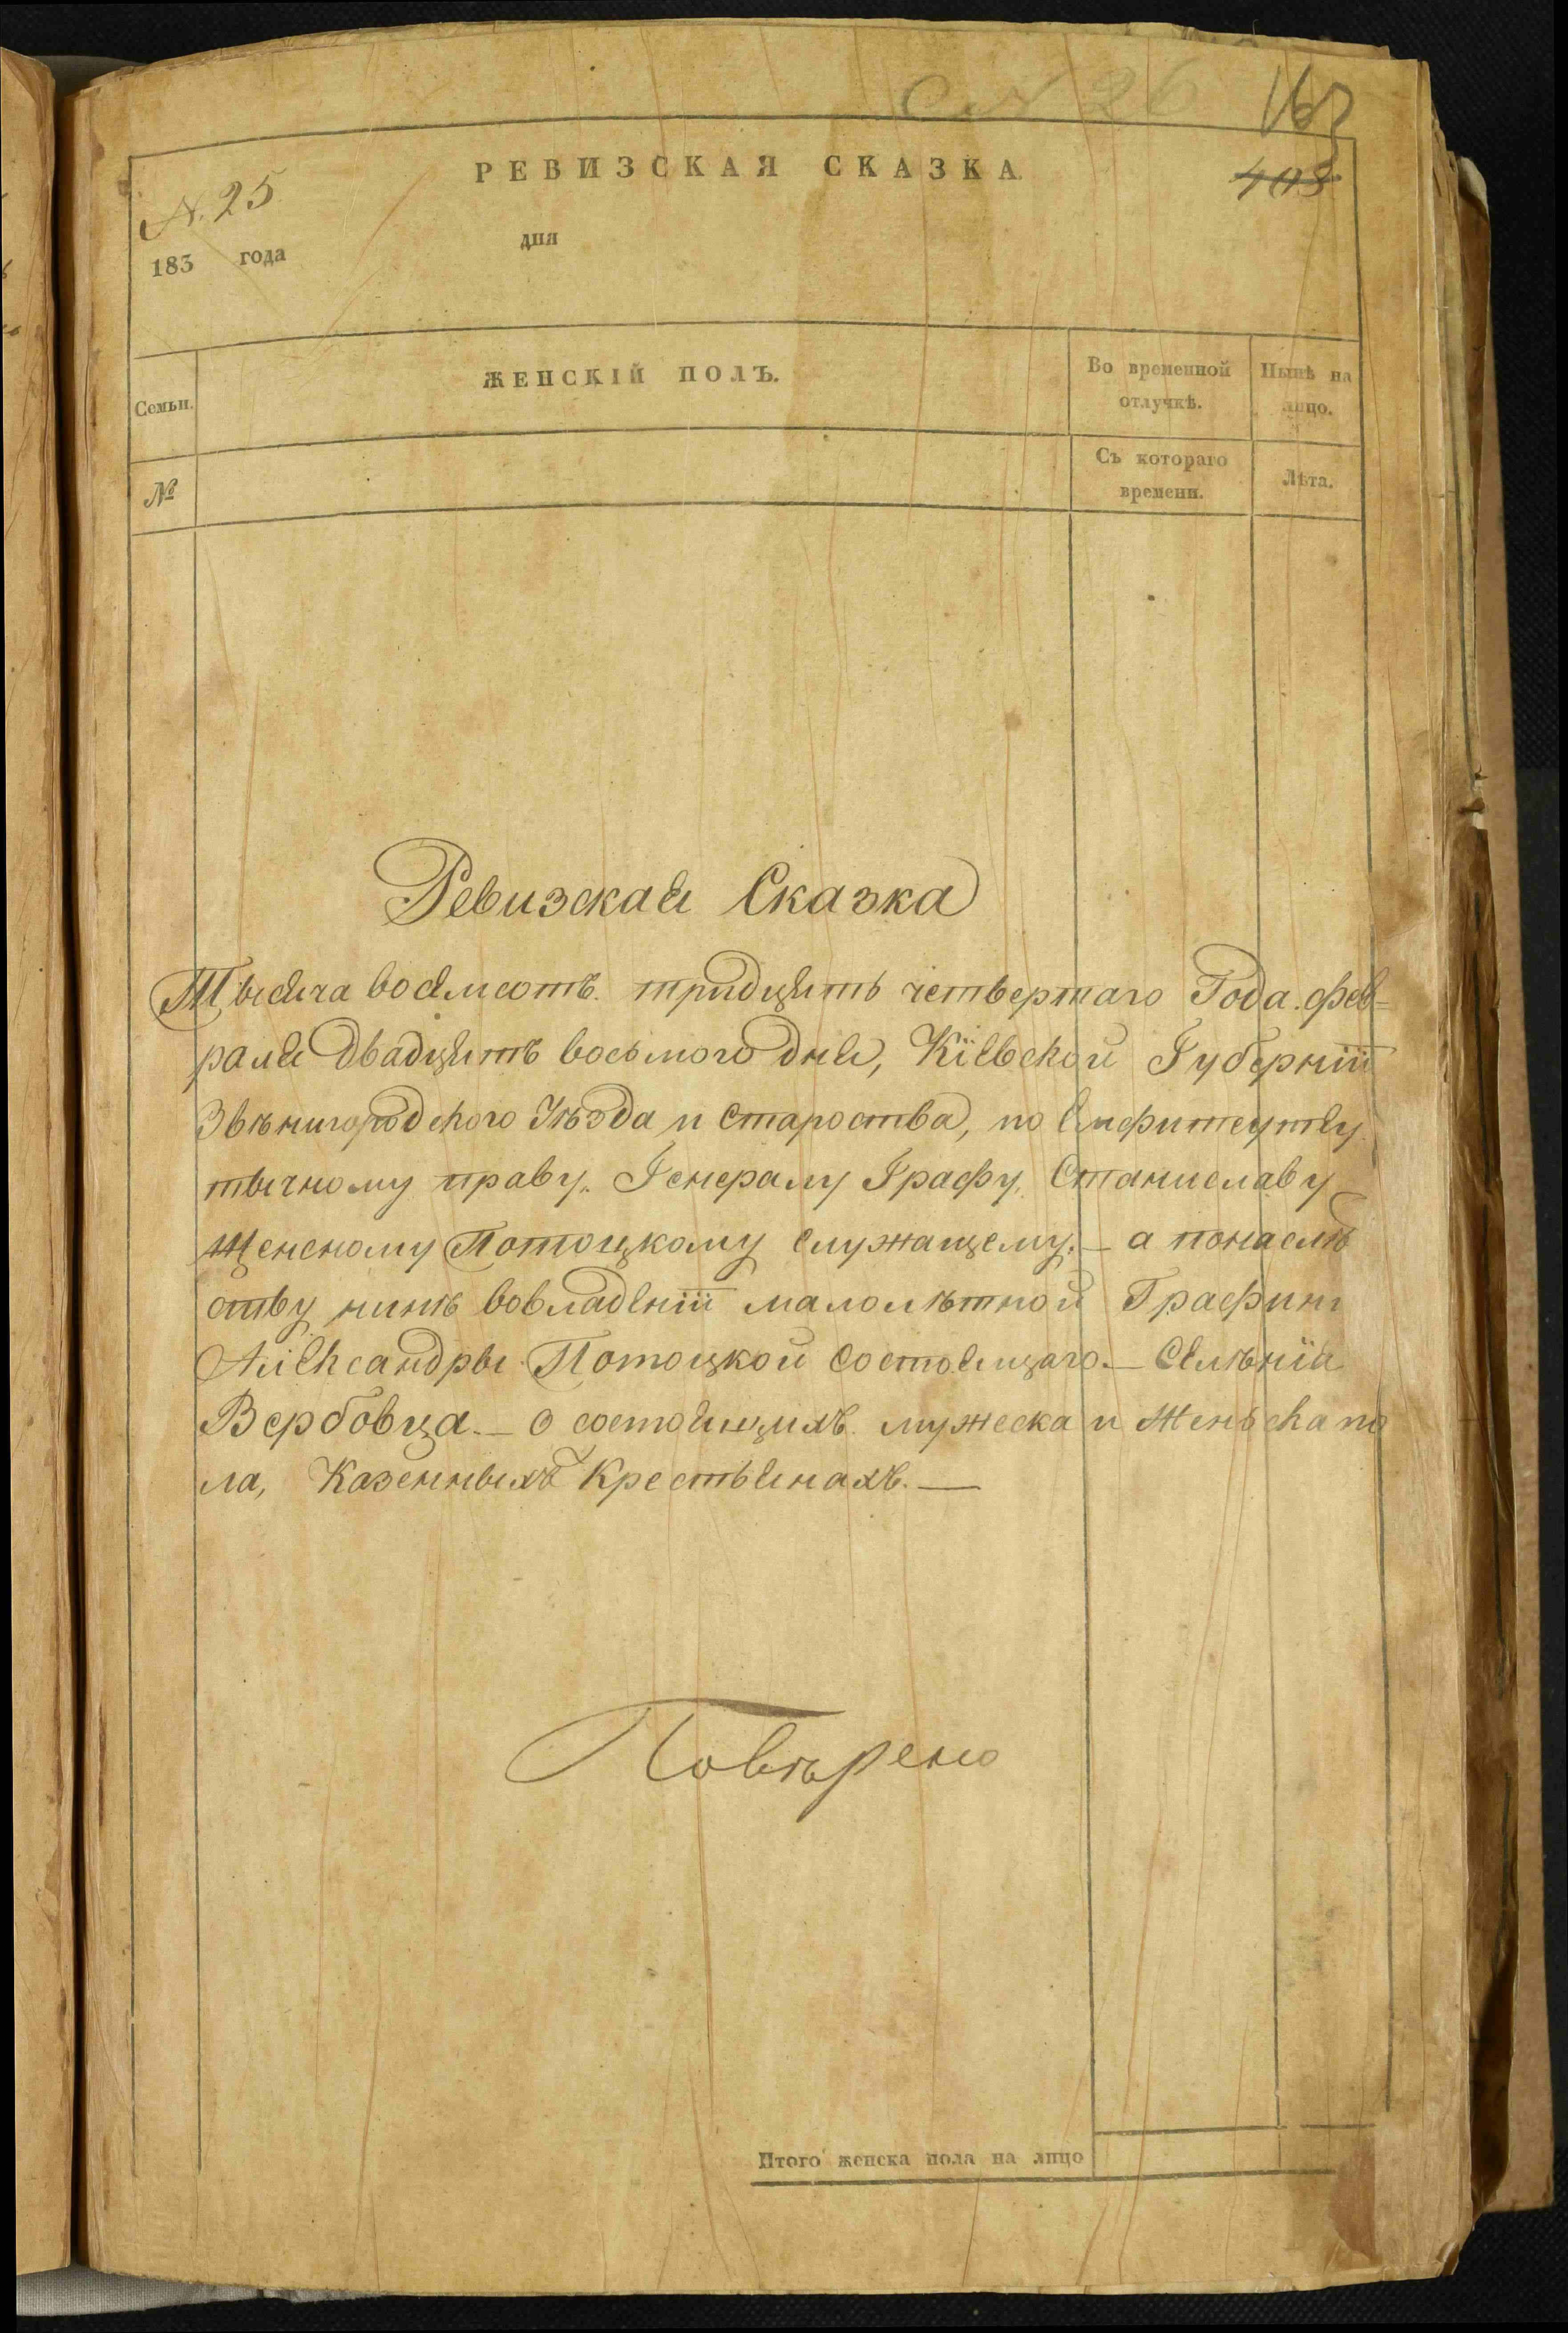 С № 26
163
РЕВИЗСКАЯ СКАЗКА
403
№. 25
183 года
дня
Семьи.
ЖЕНСКІЙ ПОЛЪ.
Во временной отлучкѣ.
Нынѣ на лицо.
№
Съ котораго времени.
Лѣта.
Ревизская Сказка
Тысяча восѣмсотъ. тридцять четвертаго Года. фев=
раля двадцять восьмого дня, Кіевской Губерніи
Звѣнигородского Уѣзда и староства, по Емфитеуты
тычному праву. Генералу Графу, Станиславу
Щенсному Потоцкому служащему. – а понаслѣ
дству нинѣ вовладеніи малолѣтной Графини
Александры Потоцкой состоящаго. – Селѣнія
Вербовца. – о состоящихъ мужеска и женьска по
ла, Казенныхъ Крестьянахъ. —
Повѣрено
Итого женска пола на лицо